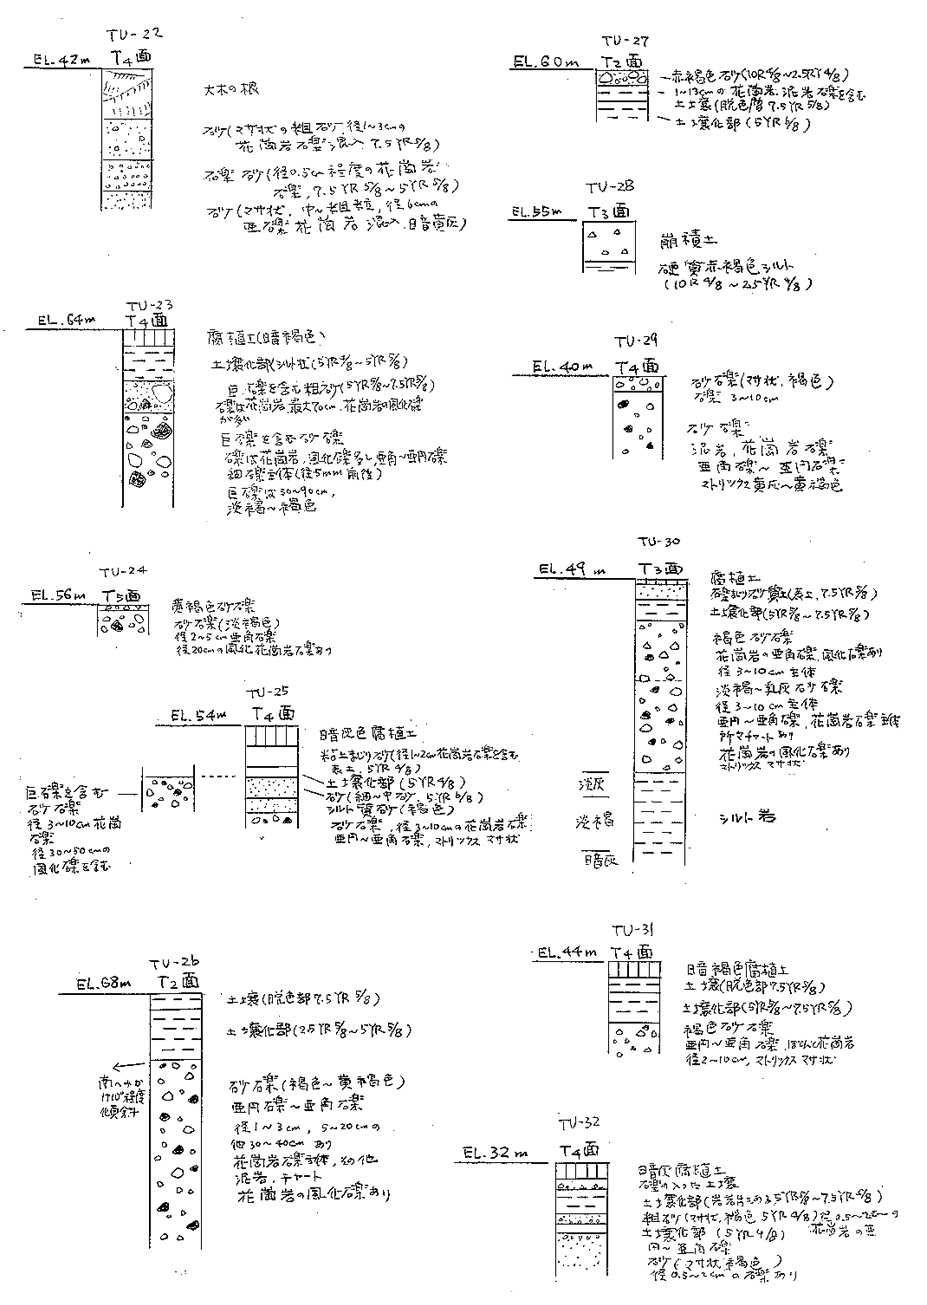 TU-22
EL.42m T4面
大木の根
砂(マサ状の粗砂,径1~3cmの
花崗岩石礫混入 7.5YR 5/8)
石礫 砂(径0.5cm程度の花崗岩
石礫,7.5YR 5/8~5YR 5/8)
砂(マサ状,中~粗粒,径6cmの
亜石礫花崗岩混入,暗黄灰)
TU-23
EL.64m T4面
腐植土(暗褐色)
土壌化部(シルト状)(5YR /8~5YR 5/8)
巨石礫を含む粗砂(5YR 5/8~7.5YR 5/8)
石礫は花崗岩,最大70cm,花崗岩の風化礫
が多い
巨石礫を含む砂石礫
石礫は花崗岩,風化礫多し,亜角~亜円石礫
細石礫主体(径5mm前後)
巨石礫は30~90cm,
淡褐~褐色
TU-24
EL.56m T5面
黄褐色砂石礫
砂石礫(淡褐色)
径2~5cm亜角石礫
径20cmの風化花崗岩石礫あり
TU-25
EL.54m T4面
暗灰色腐植土
粘土まじり砂(径1~2cm花崗岩石礫を含む
表土,5YR 4/8)
土壌化部(5YR 4/8)
砂(細~中砂,5YR 5/8)
シルト質砂(褐色)
砂石礫,径3~10cmの花崗岩石礫
亜円~亜角石礫,マトリックスマサ状
巨石礫を含む
砂石礫
径3~10cm花崗
石礫
径30~50cmの
風化礫を含む
TU-26
EL.68m T2面
土壌(脱色部7.5YR 5/8)
土壌化部(2.5YR 5/8~5YR 5/8)
南へ
10°程度
傾斜
砂石礫(褐色~黄褐色)
亜円石礫~亜角石礫
径1~3cm,5~20cmの
他30~40cmあり
花崗岩石礫主体,その他
泥岩,チャート
花崗岩の風化石礫あり
TU-27
EL.60m T2面
赤褐色砂(10R 4/8~2.5YR 4/8)
1~13cmの花崗岩,泥岩石礫を含む
土壌(脱色層7.5YR 5/8)
土壌化部(5YR 5/8)
TU-28
EL.55m T3面
崩積土
硬質赤褐色シルト
(10R 4/8~2.5YR 4/8)
TU-29
EL.40m T4面
砂石礫(マサ状,褐色)
石礫 3~10cm
砂石礫
泥岩,花崗岩石礫
亜角石礫~亜円石礫
マトリックス黄灰~黄褐色
TU-30
EL.49m T3面
腐植土
石礫まじり砂質土(表土,7.5YR 5/8)
土壌化部(5YR 5/8~7.5YR 5/8)
褐色砂石礫
花崗岩の亜角石礫,風化石礫あり
径3~10cm主体
淡褐~乳灰砂石礫
径3~10cm主体
亜円~亜角石礫,花崗岩石礫主体
所々チャートあり
花崗岩の風化石礫あり
マトリックスマサ状
淡灰
淡褐
暗灰
シルト岩
TU-31
EL.44m T4面
暗褐色腐植土
土壌(脱色部7.5YR 5/8)
土壌化部(5YR 5/8~7.5YR 5/8)
褐色砂石礫
亜円~亜角石礫,ほとんど花崗岩
径2~10cm,マトリックスマサ状
TU-32
EL.32m T4面
暗灰腐植土
石礫の入った土壌
土壌化部(岩片 5YR 5/8~7.5YR 4/8)
粗砂(マサ状,褐色 5YR 4/8)径0.5~2cmの
土壌化部(5YR 4/8) 花崗岩の亜
円~亜角石礫
砂(マサ状,褐色)
径0.5~2cmの石礫あり